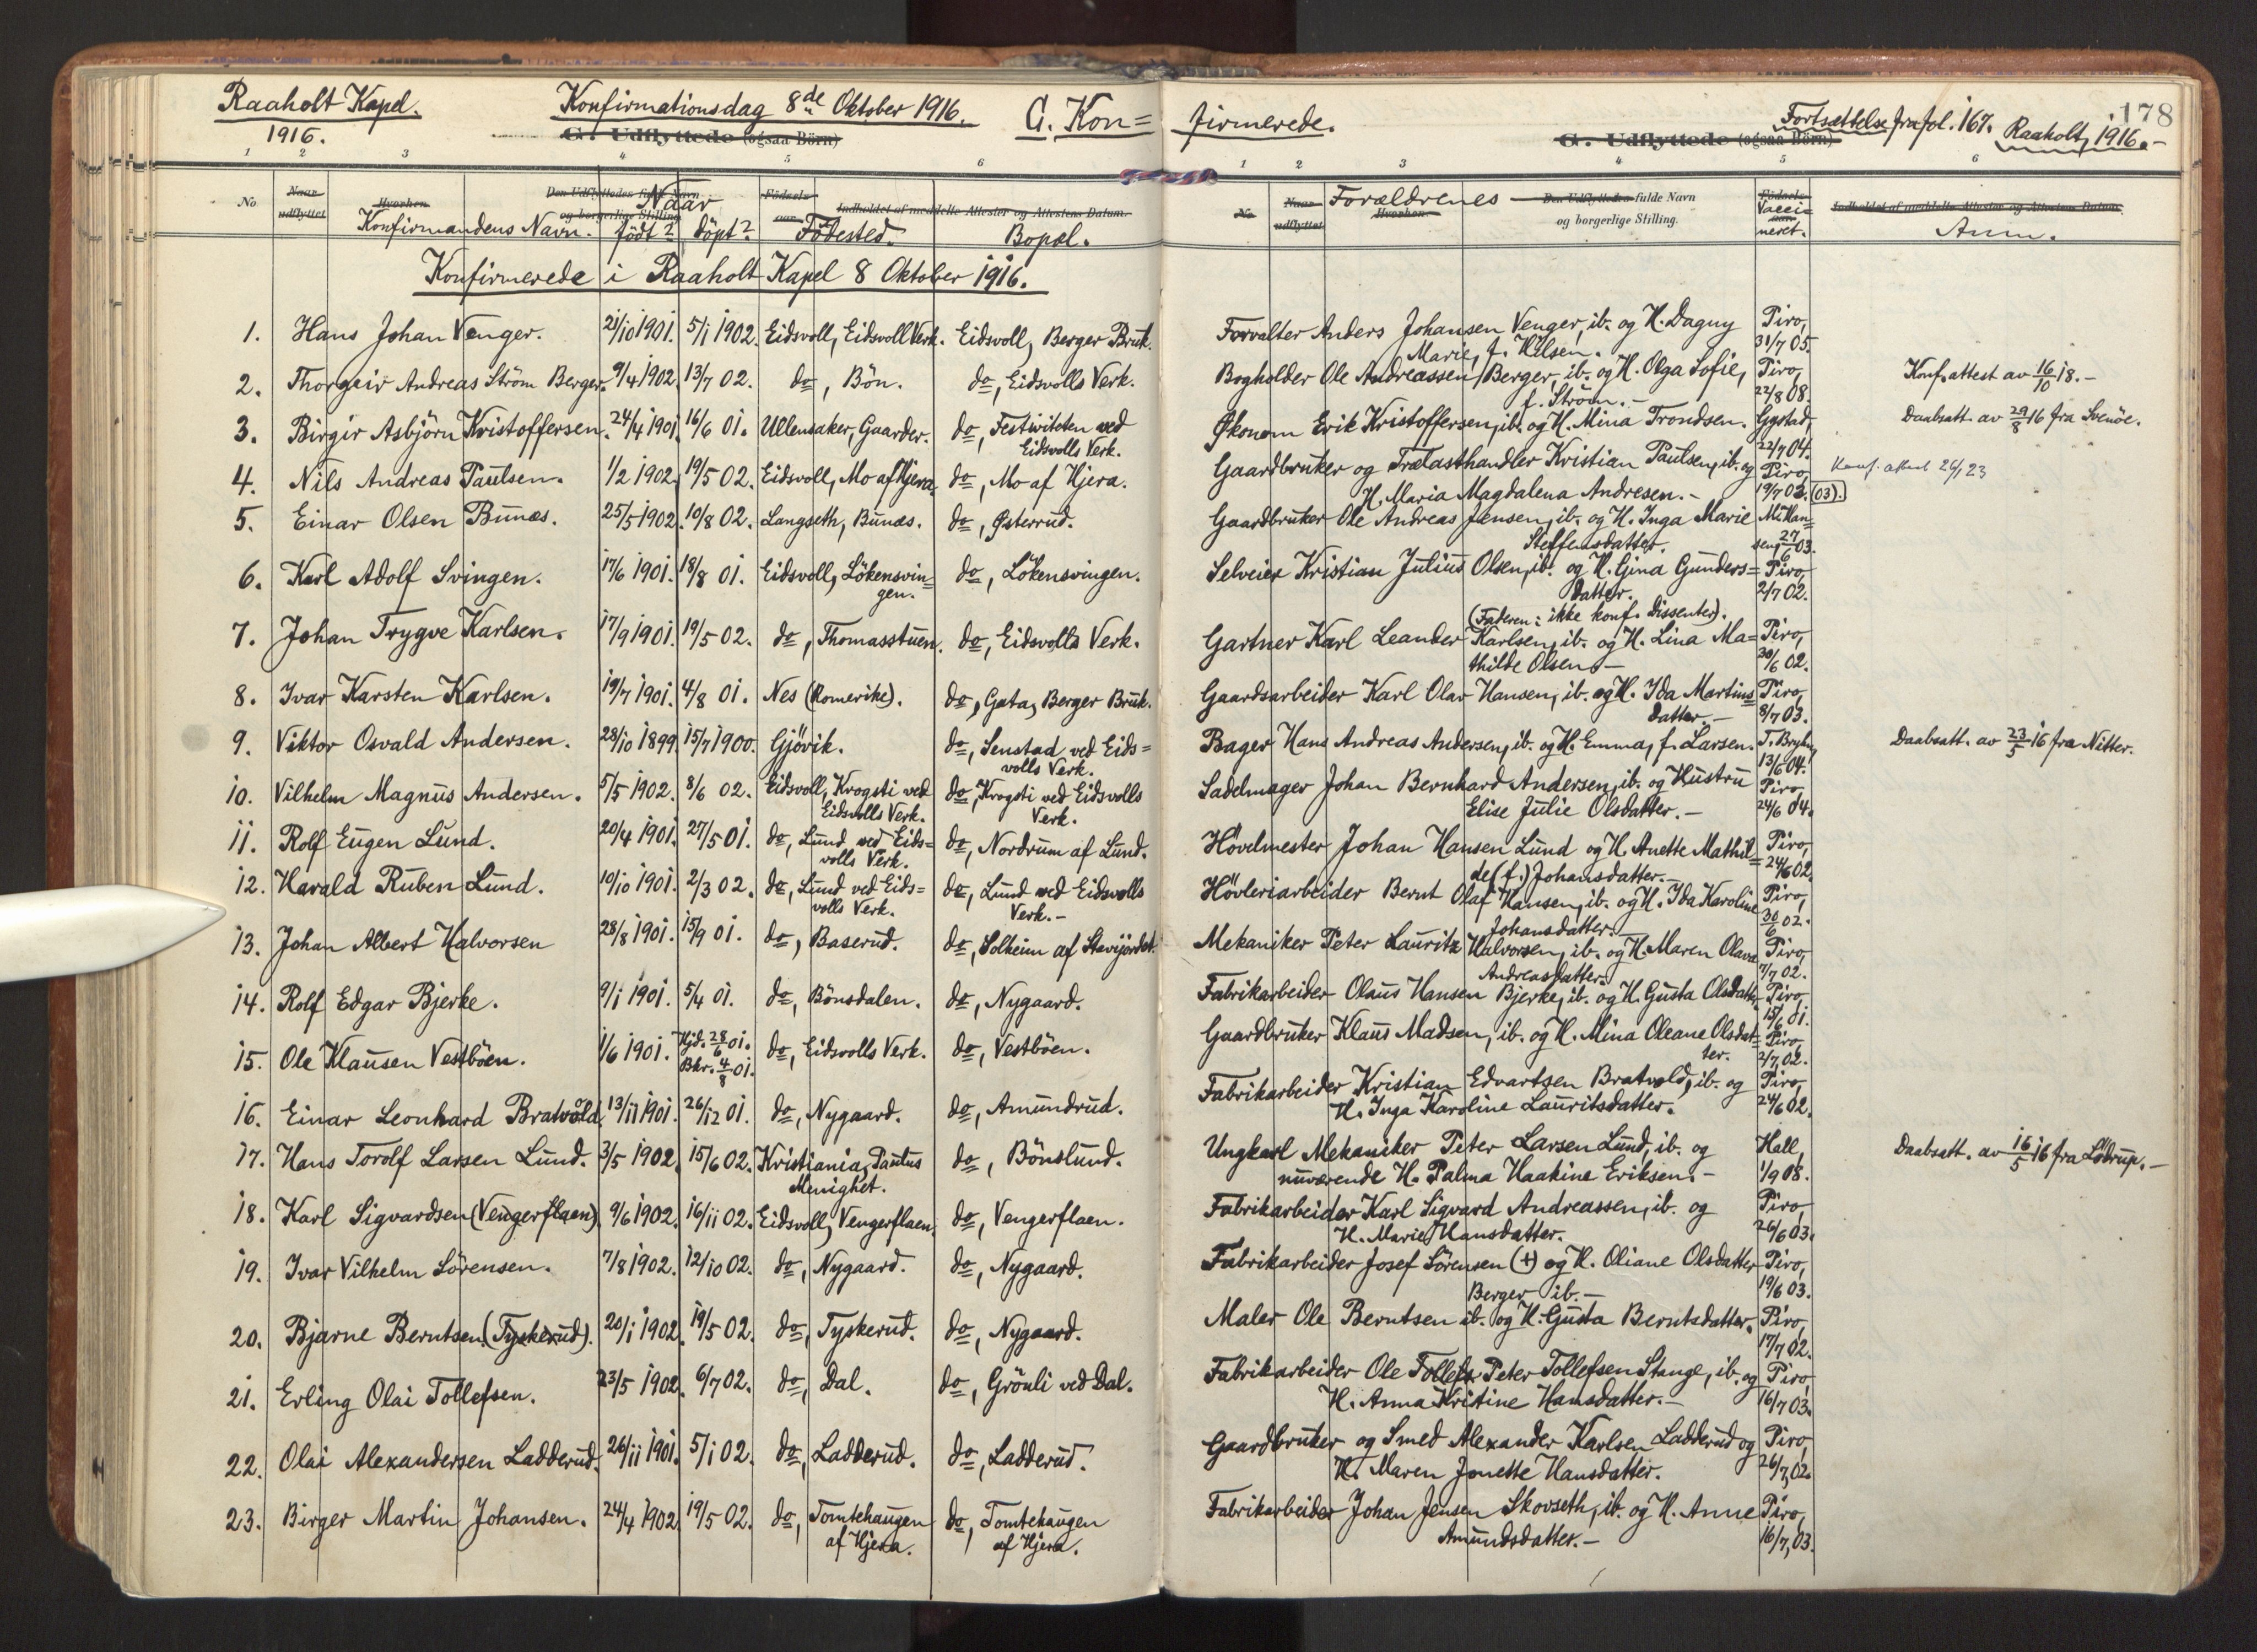 Raaholt Kapel.
1916.
Konfirmationsdag 8de Oktober 1916.
G. Udflyttede (ogsaa Börn)
G. Kon=
firmerede.
G. Udflyttede (ogsaa Börn)
Fortsættelse fra fol. 167. Raaholt, 1916.-
178
1 2 3 4 5 6
1 2 3 4 5 6
No
Naar udflyttet
Hvorhen
Konfirmandens Navn.
Den Udflyttedes fulde Navn og borgerlige Stilling
Naar
födt? döpt?
Födsels-aar
Födested.
Indholdet af meddelte Attester og Attestens Datum.
Bopæl.
No
Naar udflyttet
Hvorhen
Forældrenes
Den Udflyttedes fulde Navn
og borgerlige Stilling.
Födsels-aar
Vacci-
neret.
Indholdet af meddelte Attester og Attestens Datum.
Anm.
Konfirmerede i Raaholt Kapel 8 Oktober 1916.
1. Hans Johan Venger. 21/10 1901. 5/1 1902. Eidsvoll, Eidsvoll Verk. Eidsvoll, Berger Bruk. Forvalter Anders Johansen Venger, ib. og H. Dagny Piro,
Marie, f. Nilsen. 31/7 05.
2. Thorgeir Andreas Ström Berger. 9/4 1902. 13/7 02. do, Bön. do, Eidsvolls Verk. Bogholder Ole Andreassen Berger, ib. og H. Olga Sofie, Piro, Konf. attest av 16/10 18.-
f. Ström.- 22/8 08.
3. Birgir Asbjörn Kristoffersen. 24/4 1901. 16/6 01. Ullensaker, Gaarder. do, Festiviteten ved Økonom Erik Kristoffersen, ib. og H. Mina Trondsen. Gystad, Daabsatt. av 29/8 16 fra Svenöe.
Eidsvolls Verk. 22/7 04.
4. Nils Andreas Paulsen. 1/2 1902. 19/5 02. Eidsvoll, Mo af Hjera. do, Mo af Hjera. Gaardbruker og Trælasthandler Kristian Paulsen, ib. og Piro, Konf. attest 26/1 23
H. Maria Magdalena Andresen.- 19/7 02. (03).
5. Einar Olsen Bunæs. 25/5 1902. 10/8 02. Langseth, Bunæs. do, Østerrud. Gaardbruker Ole Andreas Jensen, ib. og H. Inga Marie
Steffensdatter. 27/6 03.
6. Karl Adolf Svingen. 17/6 1901. 18/8 01. Eidsvoll, Lökensvin= do, Lökensvingen. Selveier Kristian Julius Olsen, ib. og H. Gina Gunders= Piro,
gen. datter. 2/7 02.
(Faderen: ikke konf. Dissenter).
7. Johan Trygve Karlsen. 17/9 1901. 19/5 02. do, Thomasstuen. do, Eidsvolls Verk. Gartner Karl Leander Karlsen, ib. og H. Lina Ma= Piro,
thilde Olsen.- 30/6 02.
8. Ivar Karsten Karlsen. 19/7 1901. 4/8 01. Nes (Romerike). do, Gata, Berger Bruk. Gaardsarbeider Karl Olav Hansen, ib. og H. Ida Martins= Piro,
datter.- 8/7 03.
9. Viktor Osvald Andersen. 28/10 1899. 15/7 1900. Gjövik. do, Senstad ved Eids= Bager Hans Andreas Andersen, ib. og H. Emma, f. Larsen. Daabsatt. av 23/5 16 fra Nitter.
volls Verk. 13/6 04.
10. Vilhelm Magnus Andersen. 5/5 1902. 8/6 02. Eidsvoll, Krogsti ved do, Krogsti ved Eidsvolls Sadelmager Johan Bernhard Andersen, ib. og Hustru Piro,
Eidsvolls Verk. Verk. Elise Julie Olsdatter.- 24/6 04.
11. Rolf Eugen Lund. 20/4 1901. 27/5 01. do, Lund ved Eids= do, Nordrum af Lund. Hövelmester Johan Hansen Lund og H. Anette Mathil= Piro,
volls Verk. de (f.) Johansdatter.- 24/6 02.
12. Harald Ruben Lund. 10/10 1901. 2/3 02. do, Lund ved Eids= do, Lund ved Eidsvolls Hövleriarbeider Bernt Olaf Hansen, ib. og H. Ida Karoline Piro,
volls Verk. Verk.- Johansdatter.- 30/6 02.
13. Johan Albert Halvorsen 28/8 1901. 15/9 01. do, Baserud. do, Solheim af Stavijordet. Mekaniker Peter Lauritz Halvorsen, ib. og H. Maren Olava Piro,
Andreasdatter. 7/7 02.
14. Rolf Edgar Bjerke. 9/1 1901. 5/4 01. do, Bönsdalen. do, Nygaard. Fabrikarbeider Olaus Hansen Bjerke, ib. og H. Gusta Olsdatter Piro,
15/6 01.
15. Ole Klausen Vestböen. 1/6 1901. Hjd. 28/6 01. Bkr. 4/8 01. do, Eidsvolls Verk. do, Vestböen. Gaardbruker Klaus Madsen, ib. og H. Mina Oleane Olsdat= Piro,
ter. 2/7, 02.
16. Einar Leonhard Bratvold. 13/11 1901. 26/12 01. do, Nygaard. do, Amundrud. Fabrikarbeider Kristian Edvartsen Bratvold, ib. og Piro,
H. Inga Karoline Lauritsdatter. 24/6 02.
17. Hans Torolf Larsen Lund. 3/5 1902. 15/6 02. Kristiania, Paulus do, Bönslund. Ungkarl Mekaniker Peter Larsen Lund, ib. og Hall, Daabsatt. av 16/5 16 fra Lödrup.-
Menighet. nuværende H. Palma Haakine Eriksen.- 1/9 08.
18. Karl Sigvardsen (Vengerflaen). 9/6 1902. 16/11 02. Eidsvoll, Vengerflaen. do, Vengerflaen. Fabrikarbeider Karl Sigvard Andreassen, ib. og Piro,
H. Marie Hansdatter. 26/6 03.
19. Ivar Vilhelm Sörensen. 7/8 1902. 12/10 02. do, Nygaard. do, Nygaard. Fabrikarbeider Josef Sörensen (+) og H. Oliane Olsdatter Piro,
Berger ib.- 19/6 03.
20. Bjarne Berntsen (Tyskerud). 20/1 1902. 19/5 02. do, Tyskerud. do, Nygaard. Maler Ole Berntsen ib. og H. Gusta Berntsdatter. Piro,
17/7 02.
21. Erling Olai Tollefsen. 23/5 1902. 6/7 02. do, Dal. do, Grönli ved Dal. Fabrikarbeider Ole Peter Tollefsen Stange, ib. og Piro,
H. Anna Kristine Hansdatter.- 16/7 03.
22. Olai Alexandersen Ladderud. 26/11 1901. 5/1 02. do, Ladderud. do, Ladderud. Gaardbruker og Smed Alexander Karlsen Ladderud og Piro,
H. Maren Jonette Hansdatter. 26/7, 02.
23. Birger Martin Johansen. 24/4 1902. 19/5 02. do, Tomtehaugen do, Tomtehaugen Fabrikarbeider Johan Jensen Skovseth, ib. og H. Anne Piro,
af Hjera. af Hjera. Amundsdatter.- 16/7, 03.